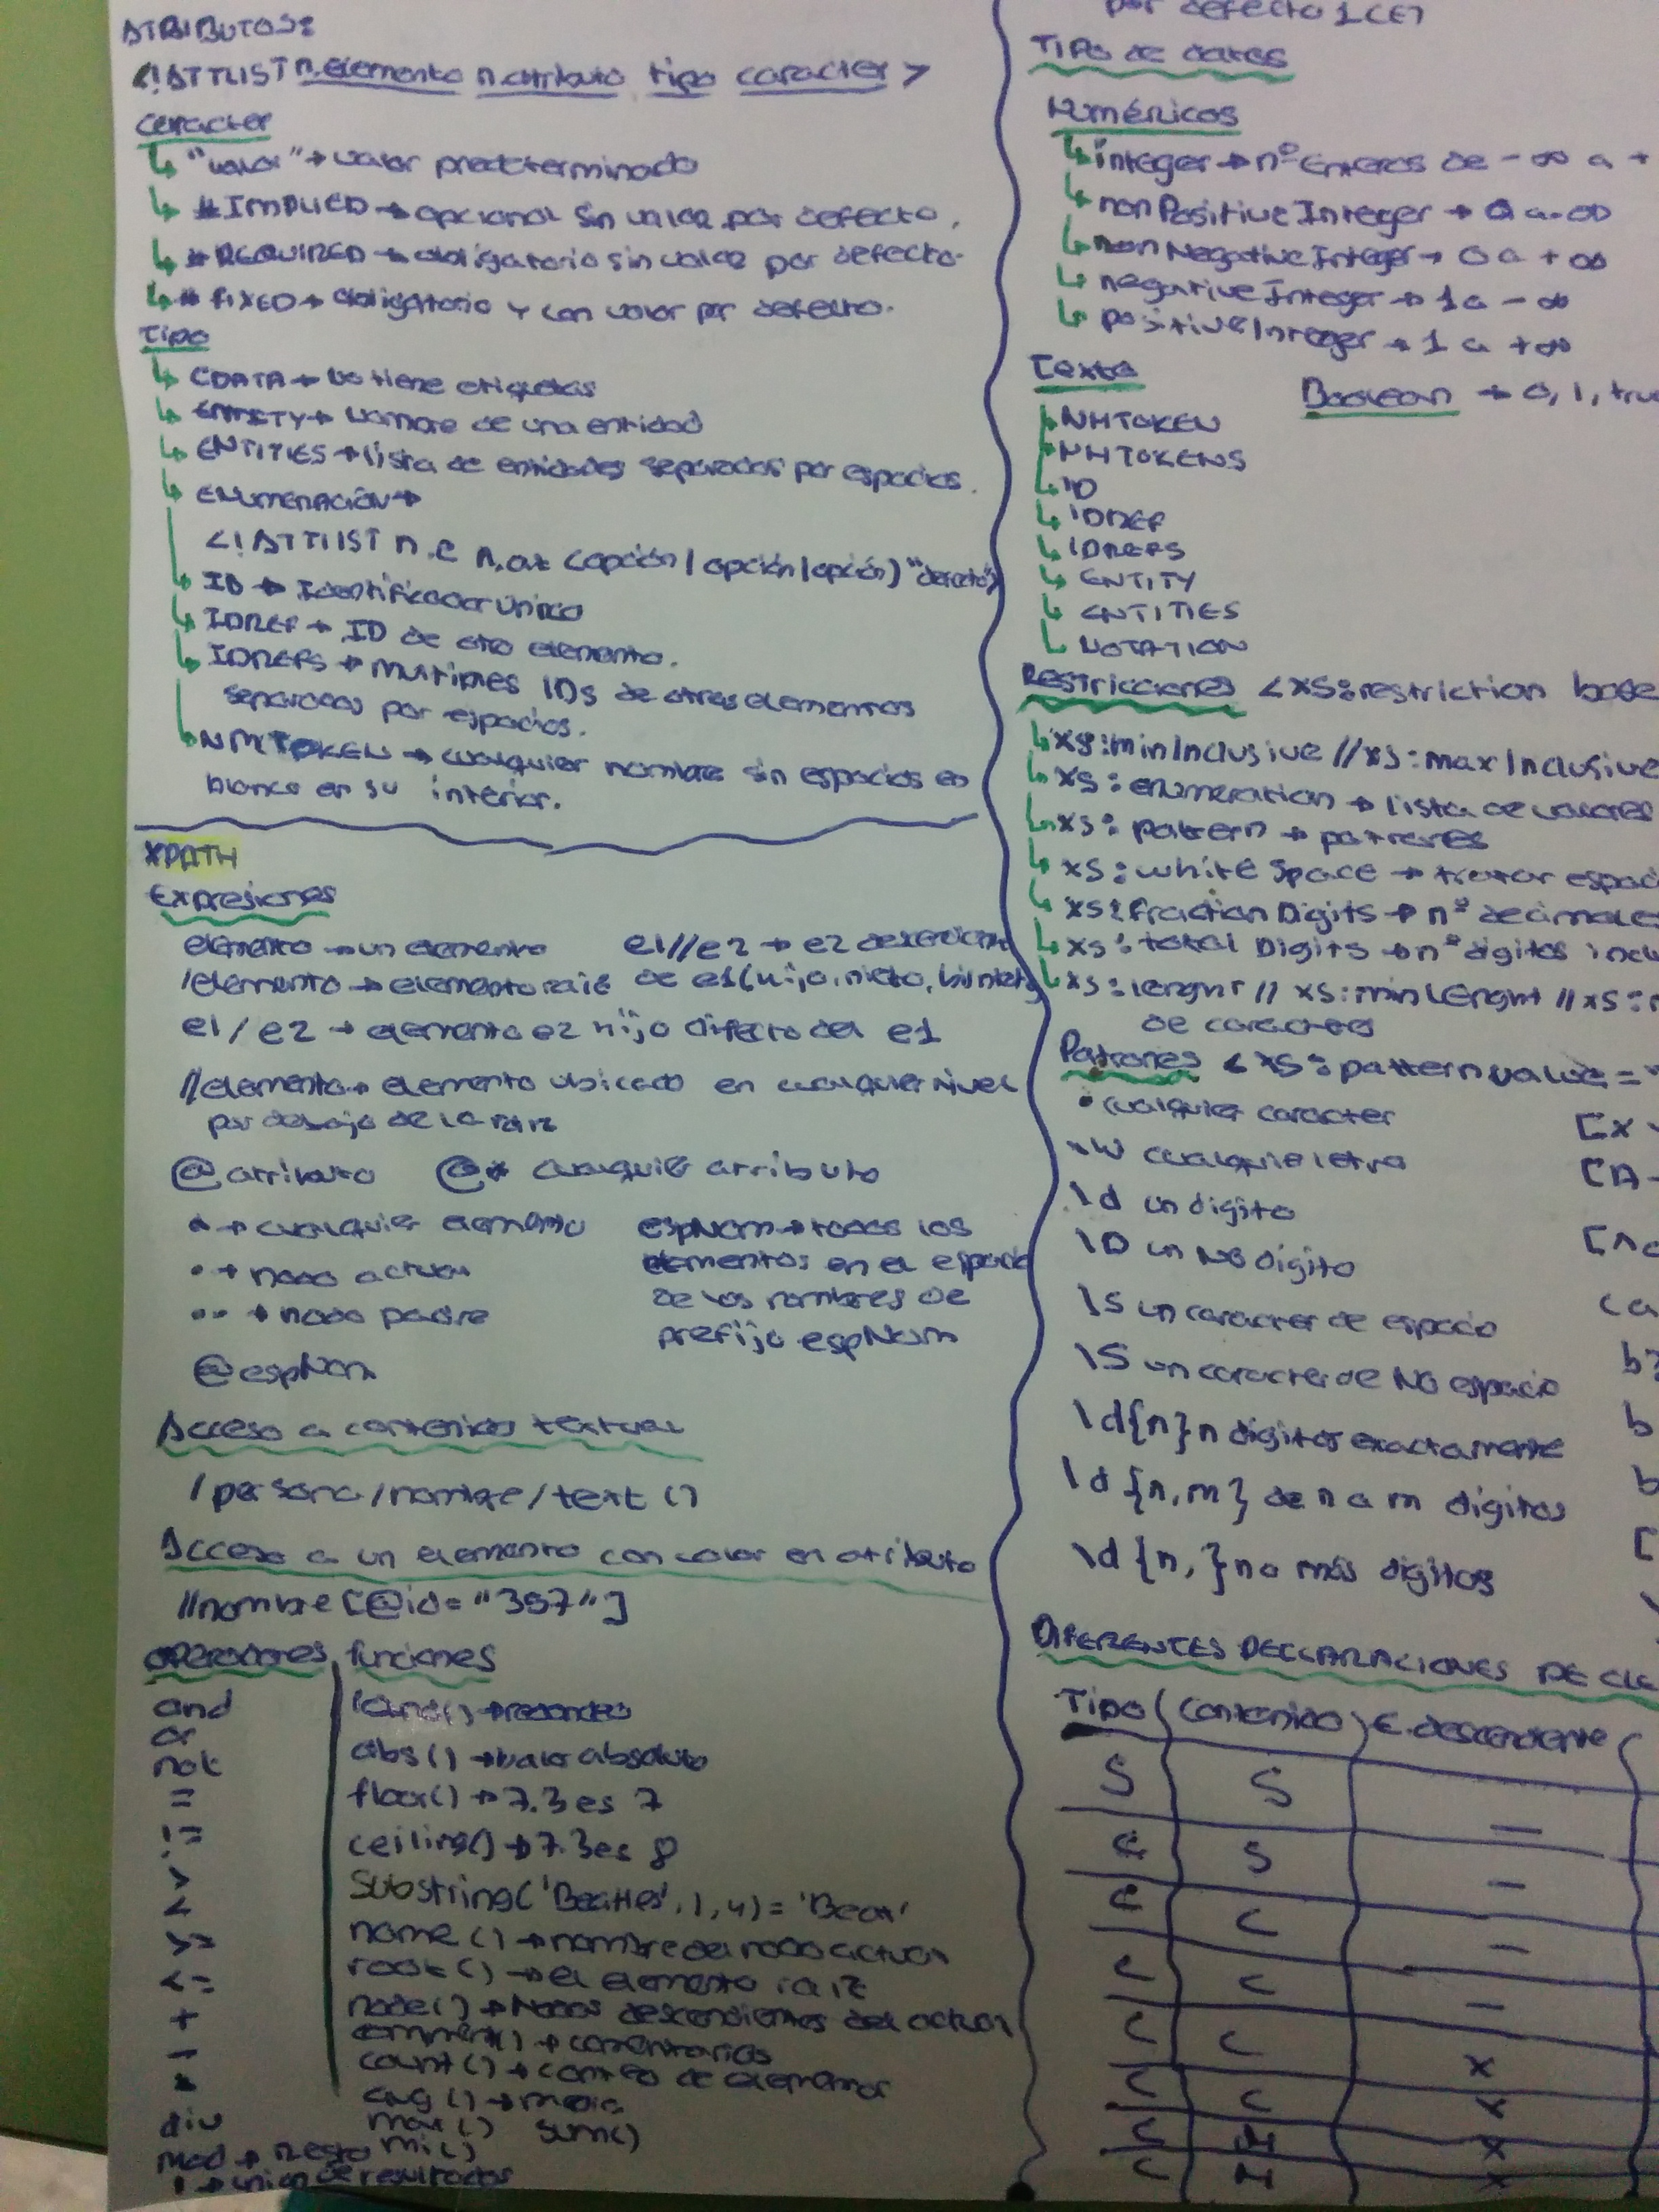 ATRIBUTOS:
<!ATTLIST n.elemento n.atributo tipo caracter >
Caracter
"valor" → valor predeterminado
#IMPLIED → opcional sin valor por defecto.
#REQUIRED → obligatorio sin valor por defecto.
#FIXED → obligatorio y con valor por defecto.
Tipo
CDATA → No tiene etiquetas
ENTITY → Nombre de una entidad
ENTITIES → lista de entidades separados por espacios.
ENUMERACIÓN →
<!ATTLIST n.e n.at (opción | opción | opción) "defecto">
ID → Identificador único
IDREF → ID de otro elemento.
IDREFS → multiples IDs de otros elementos
separados por espacios.
NMTOKEN → cualquier nombre sin espacios en
blanco en su interior.
XPATH
Expresiones
elemento → un elemento
/elemento → elemento raíz
e1//e2 → e2 descendiente
de e1 (hijo, nieto, bisnieto
e1/e2 → elemento e2 hijo directo del e1
//elemento → elemento ubicado en cualquier nivel
por debajo de la raiz
@atributo @* cualquier atributo
* → cualquier elemento
. → nodo actual
.. → nodo padre
@espNom
espNom → todos los
elementos en el espacio
de los nombres de
prefijo espNom
Acceso a contenidos textual
/persona/nombre/text()
Acceso a un elemento con valor en atributo
//nombre[@id="357"]
operadores funciones
and
or
not
=
!=
>
<
>=
<=
+
-
*
div
mod → Resto
| → union de resultados
round() → redondeo
abs() → valor absoluto
floor() → 7.3 es 7
ceiling() → 7.3 es 8
Substring('Beatles',1,4) = 'Beat'
name() → nombre del nodo actual
root() → el elemento raiz
node() → Nodos descendientes del actual
comment() → comentarios
count() → conteo de elementos
avg() → media
max() sum()
mi()
por defecto 1 (E)
Tipo de datos
Numéricos
integer → nº Enteros de -∞ a +
nonPositiveInteger → 0 a -∞
nonNegativeInteger → 0 a +∞
negativeInteger → 1 a -∞
positiveInteger → 1 a +∞
Texto
Boolean → 0, 1, tru
NMTOKEN
NMTOKENS
ID
IDREF
IDREFS
ENTITY
ENTITIES
NOTATION
Restricciones <xs:restriction base
xs:minInclusive // xs:maxInclusive
xs:enumeration → lista de valores
xs:pattern → patrones
xs:whiteSpace → tratar espac
xs:fractionDigits → nº decimales
xs:totalDigits → nº digitos inclu
xs:lenght // xs:minLenght // xs:m
de caracteres
Patrones <xs:pattern value="
. cualquier caracter
\w cualquier letra
\d un digito
\D un NO digito
\s un caracter de espacio
\S un caracter de NO espacio
\d{n} n digitos exactamente
\d{n,m} de n a m digitos
\d{n,} n o más digitos
[x
[A-
[^a
(a
b?
b
b
[
DIFERENTES DECLARACIONES DE ELE
Tipo Contenido E.descendente
S S —
E S —
E C —
C C —
C C X
C C X
C M X
C M X